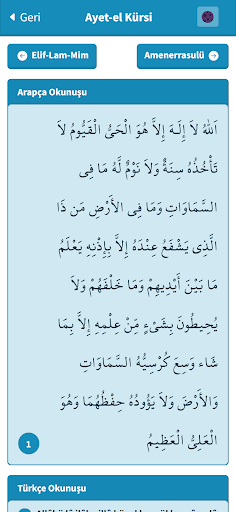 Geri
Ayet-el Kürsi
Elif-Lam-Mim
Amenerrasulü
Arapça Okunuşu
اَللهُ لاَ إِلَهَ إِلاَّ هُوَ الْحَيُّ الْقَيُّومُ لاَ
تَأْخُذُهُ سِنَةٌ وَلاَ نَوْمٌ لَّهُ مَا فِي
السَّمَاوَاتِ وَمَا فِي الأَرْضِ مَن ذَا
الَّذِي يَشْفَعُ عِنْدَهُ إِلاَّ بِإِذْنِهِ يَعْلَمُ
مَا بَيْنَ أَيْدِيهِمْ وَمَا خَلْفَهُمْ وَلاَ
يُحِيطُونَ بِشَيْءٍ مِّنْ عِلْمِهِ إِلاَّ بِمَا
شَاء وَسِعَ كُرْسِيُّهُ السَّمَاوَاتِ
وَالأَرْضَ وَلاَ يَؤُودُهُ حِفْظُهُمَا وَهُوَ
الْعَلِيُّ الْعَظِيمُ
1
Türkçe Okunuşu